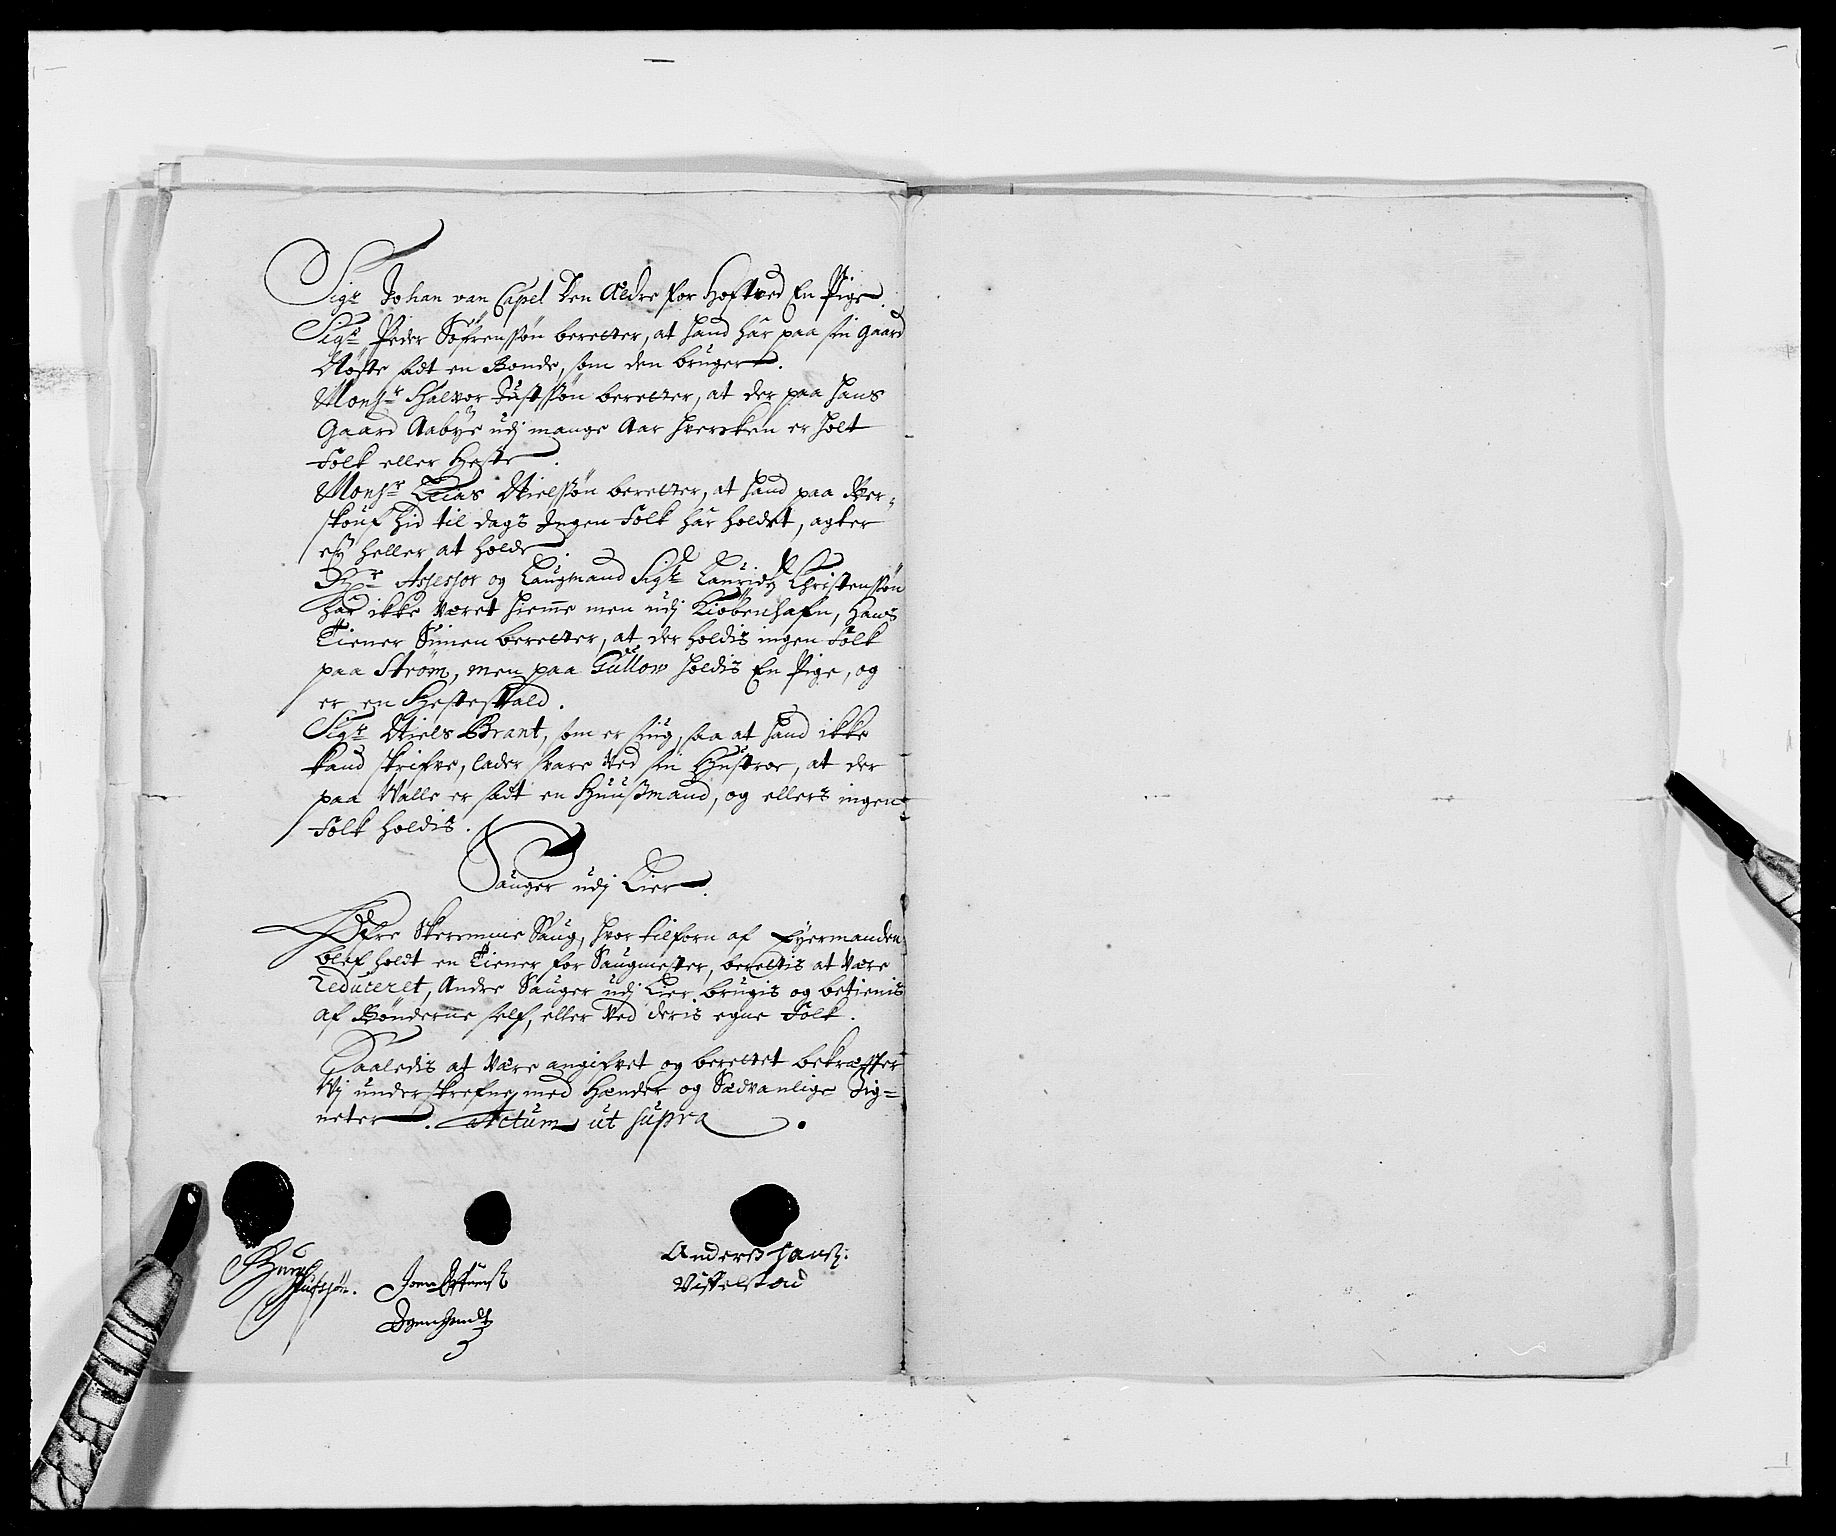 Sigr Johan van Capel den Ældre for Hoftved En Pige.
Sigr Peder Söfrenssön beretter, at hand har paa sin gaard
Nöste sadt en Bonde, som den bruger.
Monsr Halvor Justssön beretter, at der paa hans
Gaard Aabye udj mange Aar hvercken er holt
Folk eller Heste.
Monsr Lucas Nielssön beretter, at hand paa Ber-
skouf hid til dags Ingen Folk har holdet, agter
ey heller at holde.
Hr Assessor og Laugmand Sigr Lauridtz Christenssön
har ikke været hieme men udj Kiöbenhafn, Hans
Tiener Simen beretter, at der holdis ingen Folk
paa Ström, men paa Gullow holdis En Pige, og
er en Hestestald.
Sigr Niels Brant, som er siug, saa at hand ikke
kand skrifve, lader svare ved sin Hustroe, at der
paa Walle er sadt en Huusmand, og ellers ingen
Folk holdis.
Sauger udj Lier.
Öfre Skeremme Saug, hvor tilforn af Eyermanden
blef holdt en Tiener for Saugmester, berettis at være
reduceret, Andre Sauger udj Lier brugis og betienis
af Bönderne self, eller ved deris egne Folk.
Saaledis at være angifvet og berettet bekræffter
Vj underskrefne med Hænder og Sædvanlige Sig-
neter. Actum ut supra.
Anders Hanss:
Viffelstad